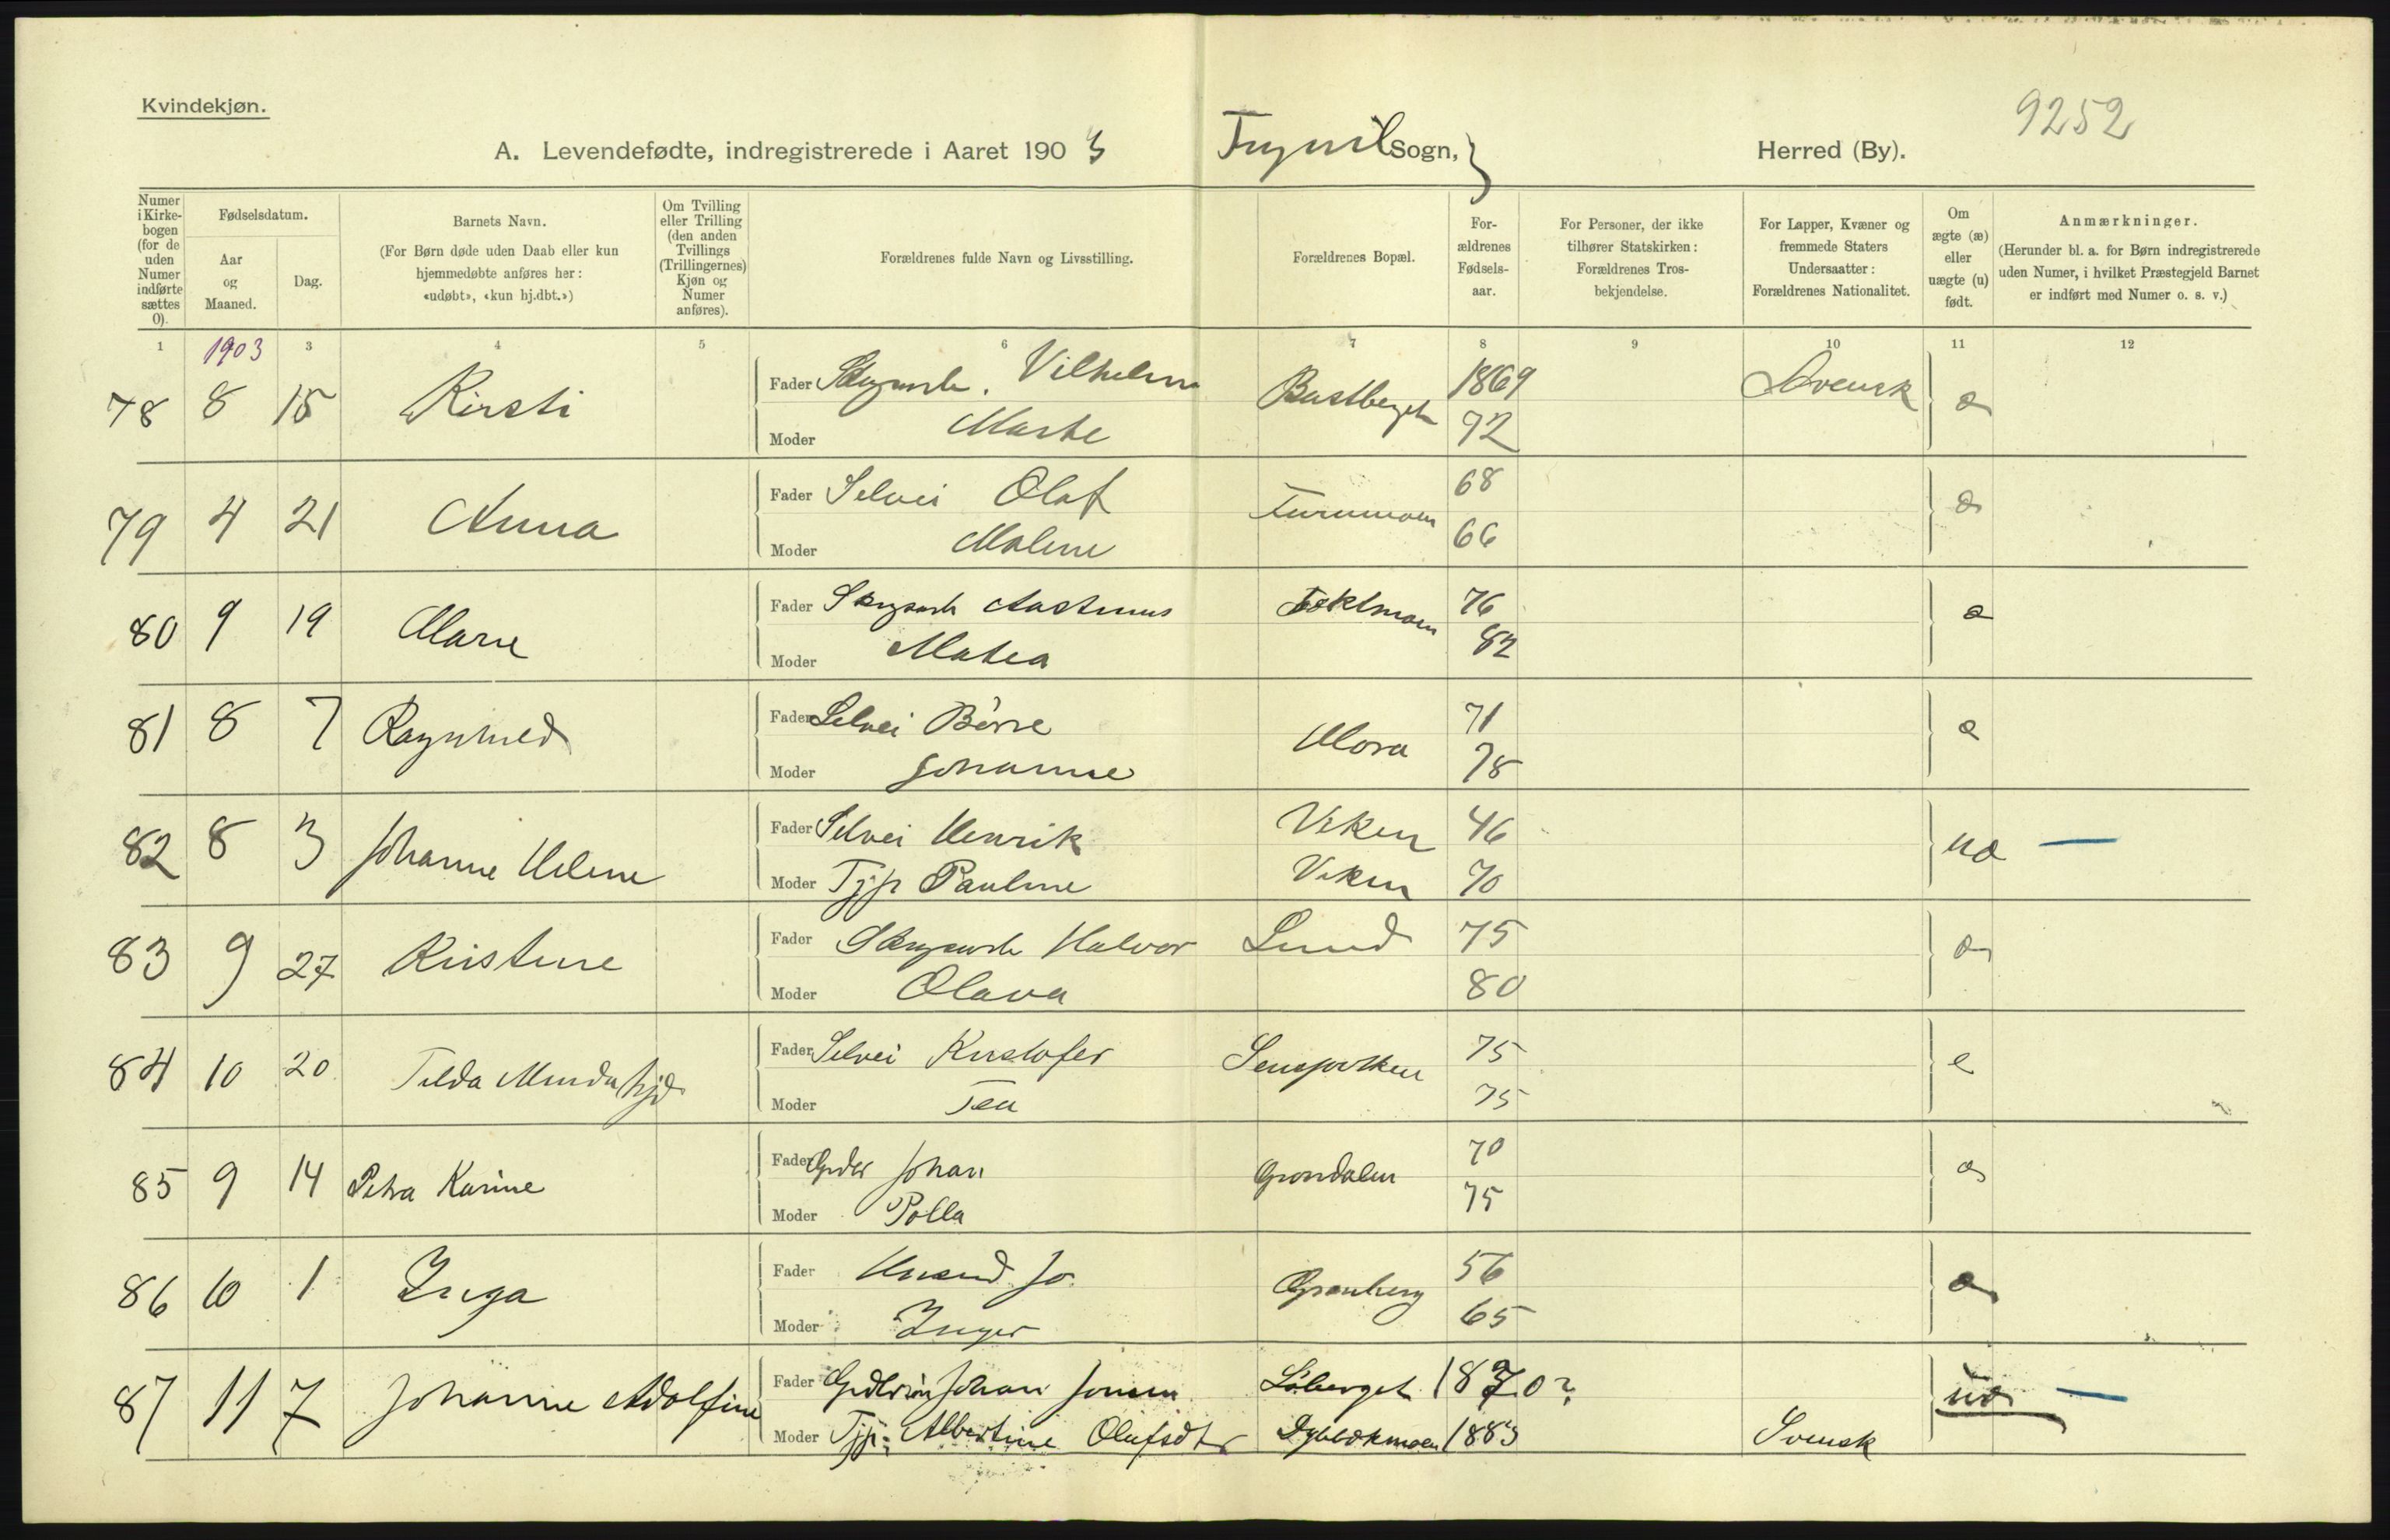 Kvindekjøn.
9252
A. Levendefødte, indregistrerede i Aaret 1903 Trysil Sogn, Herred (By).
Numer i Kirkebogen (for de uden Numer indførte sættes 0).
Fødselsdatum.
Aar og Maaned.
Dag.
Barnets Navn.
(For Børn døde uden Daab eller kun hjemmedøbte anføres her: «udøbt», «kun hj.dbt.»)
Om Tvilling eller Trilling (den anden Tvillings (Trillingernes) Kjøn og Numer anføres).
Forældrenes fulde Navn og Livsstilling.
Forældrenes Bopæl.
Forældrenes Fødselsaar.
For Personer, der ikke tilhører Statskirken: Forældrenes Trosbekjendelse.
For Lapper, Kvæner og fremmede Staters Undersaatter: Forældrenes Nationalitet.
Om ægte (æ) eller uægte (u) født.
Anmærkninger.
(Herunder bl. a. for Børn indregistrerede uden Numer, i hvilket Præstegjeld Barnet er indført med Numer o. s. v.)
1 3 4 5 6 7 8 9 10 11 12
1903
78 8 15 Kirsti Fader Vilhelm Bastberget 1869 Svensk æ
Moder Marte 72
79 4 21 Anna Fader Selvei Olaf Furumoen 68 æ
Moder Malene 66
80 9 19 Marie Fader 76 æ
Moder Matea 82
81 8 7 Ragnhild Fader Selvei Børre Mora 71 æ
Moder Johanne 78
82 8 3 Johanne Helene Fader Selvei Henrik Viken 46 uæ —
Moder Tjp Pauline Viken 70
83 9 27 Kristine Fader Halvor Lund 75 æ
Moder Olava 80
84 10 20 Tilda Minda hjd Fader Selvei Kristofer 75 æ
Moder Tea 75
85 9 14 Petra Karine Fader Johan Grøndalen 70 æ
Moder Polla 75
86 10 1 Inga Fader Jo Grønberg 56 æ
Moder Inger 65
87 11 7 Johanne Adolfine Fader Johan Jonsen Løberget 1870? uæ —
Moder Tjp: Albertine Olafsdtr 1883 Svensk